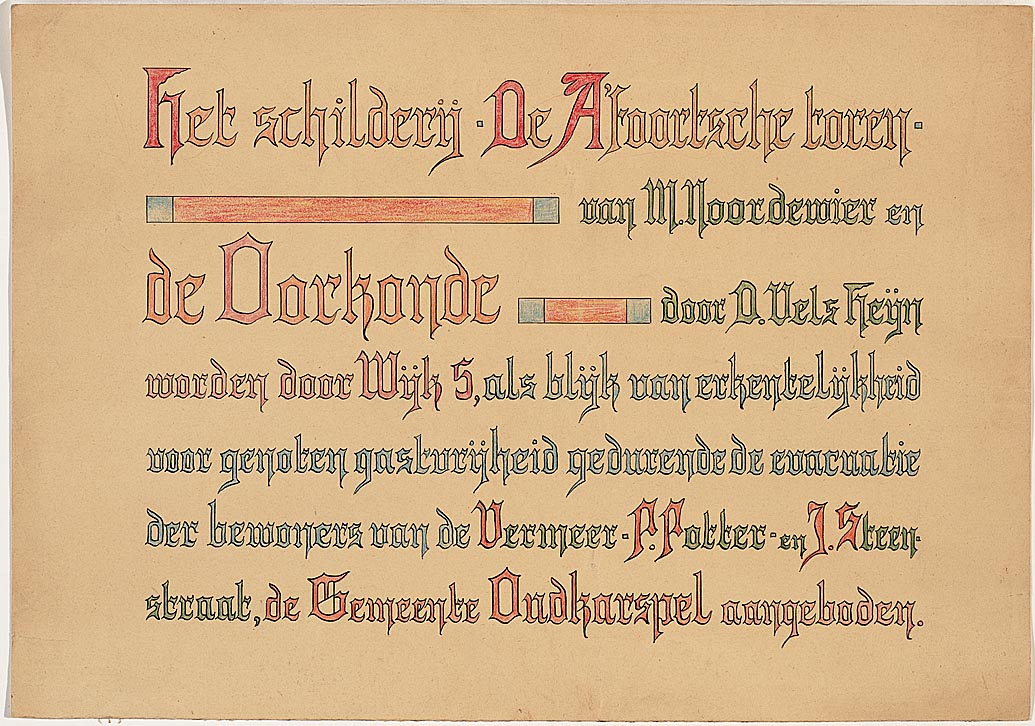 Het schilderij · De A'foortsche toren ·
van M. Noordewier en
de Oorkonde door D. Vels Heijn
worden door Wijk 5, als blijk van erkentelijkheid
voor genoten gastvrijheid gedurende de evacuatie
der bewoners van de Vermeer - P. Potter - en J. Steen-
straat, de Gemeente Oudkarspel aangeboden.